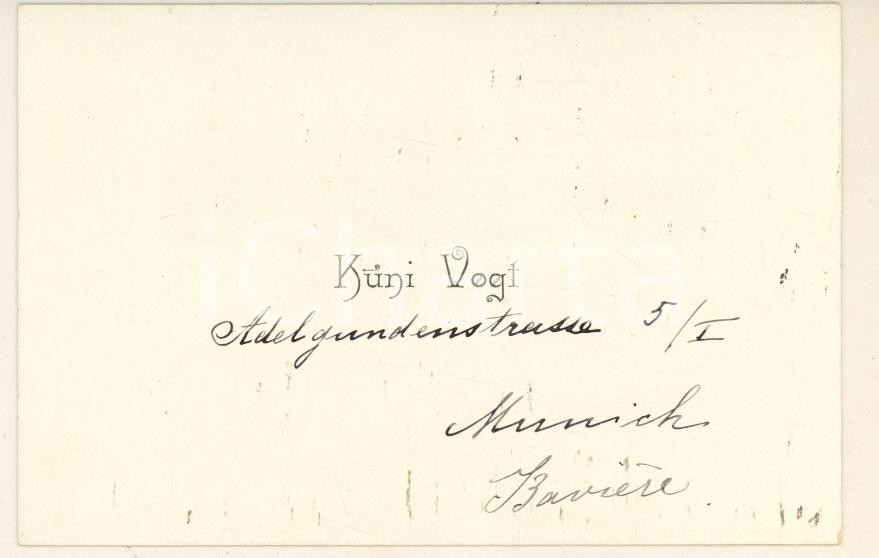 Küni Vogt
Adelgundenstrasse 5/I
Munich
Bavière
iCharta